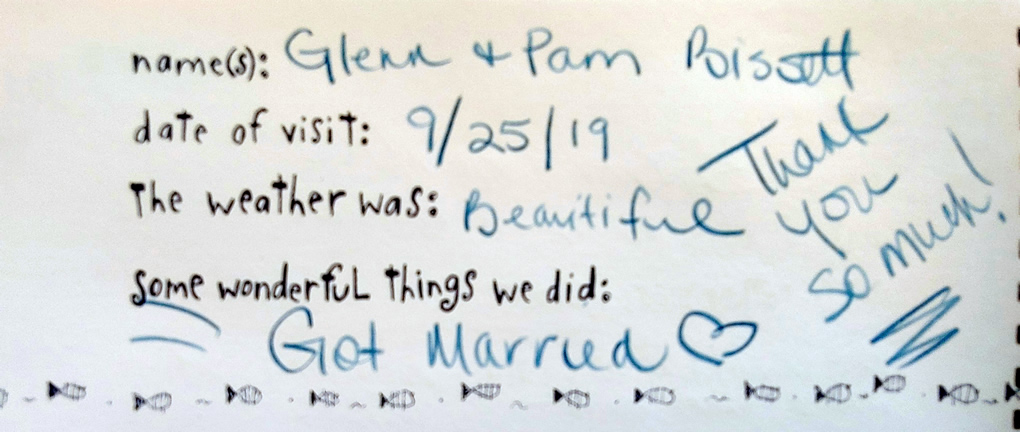 name(s): Glenn & Pam Boissett
date of visit: 9/25/19
The weather was: Beautiful
Thank
you
so much!
some wonderful things we did:
Got Married